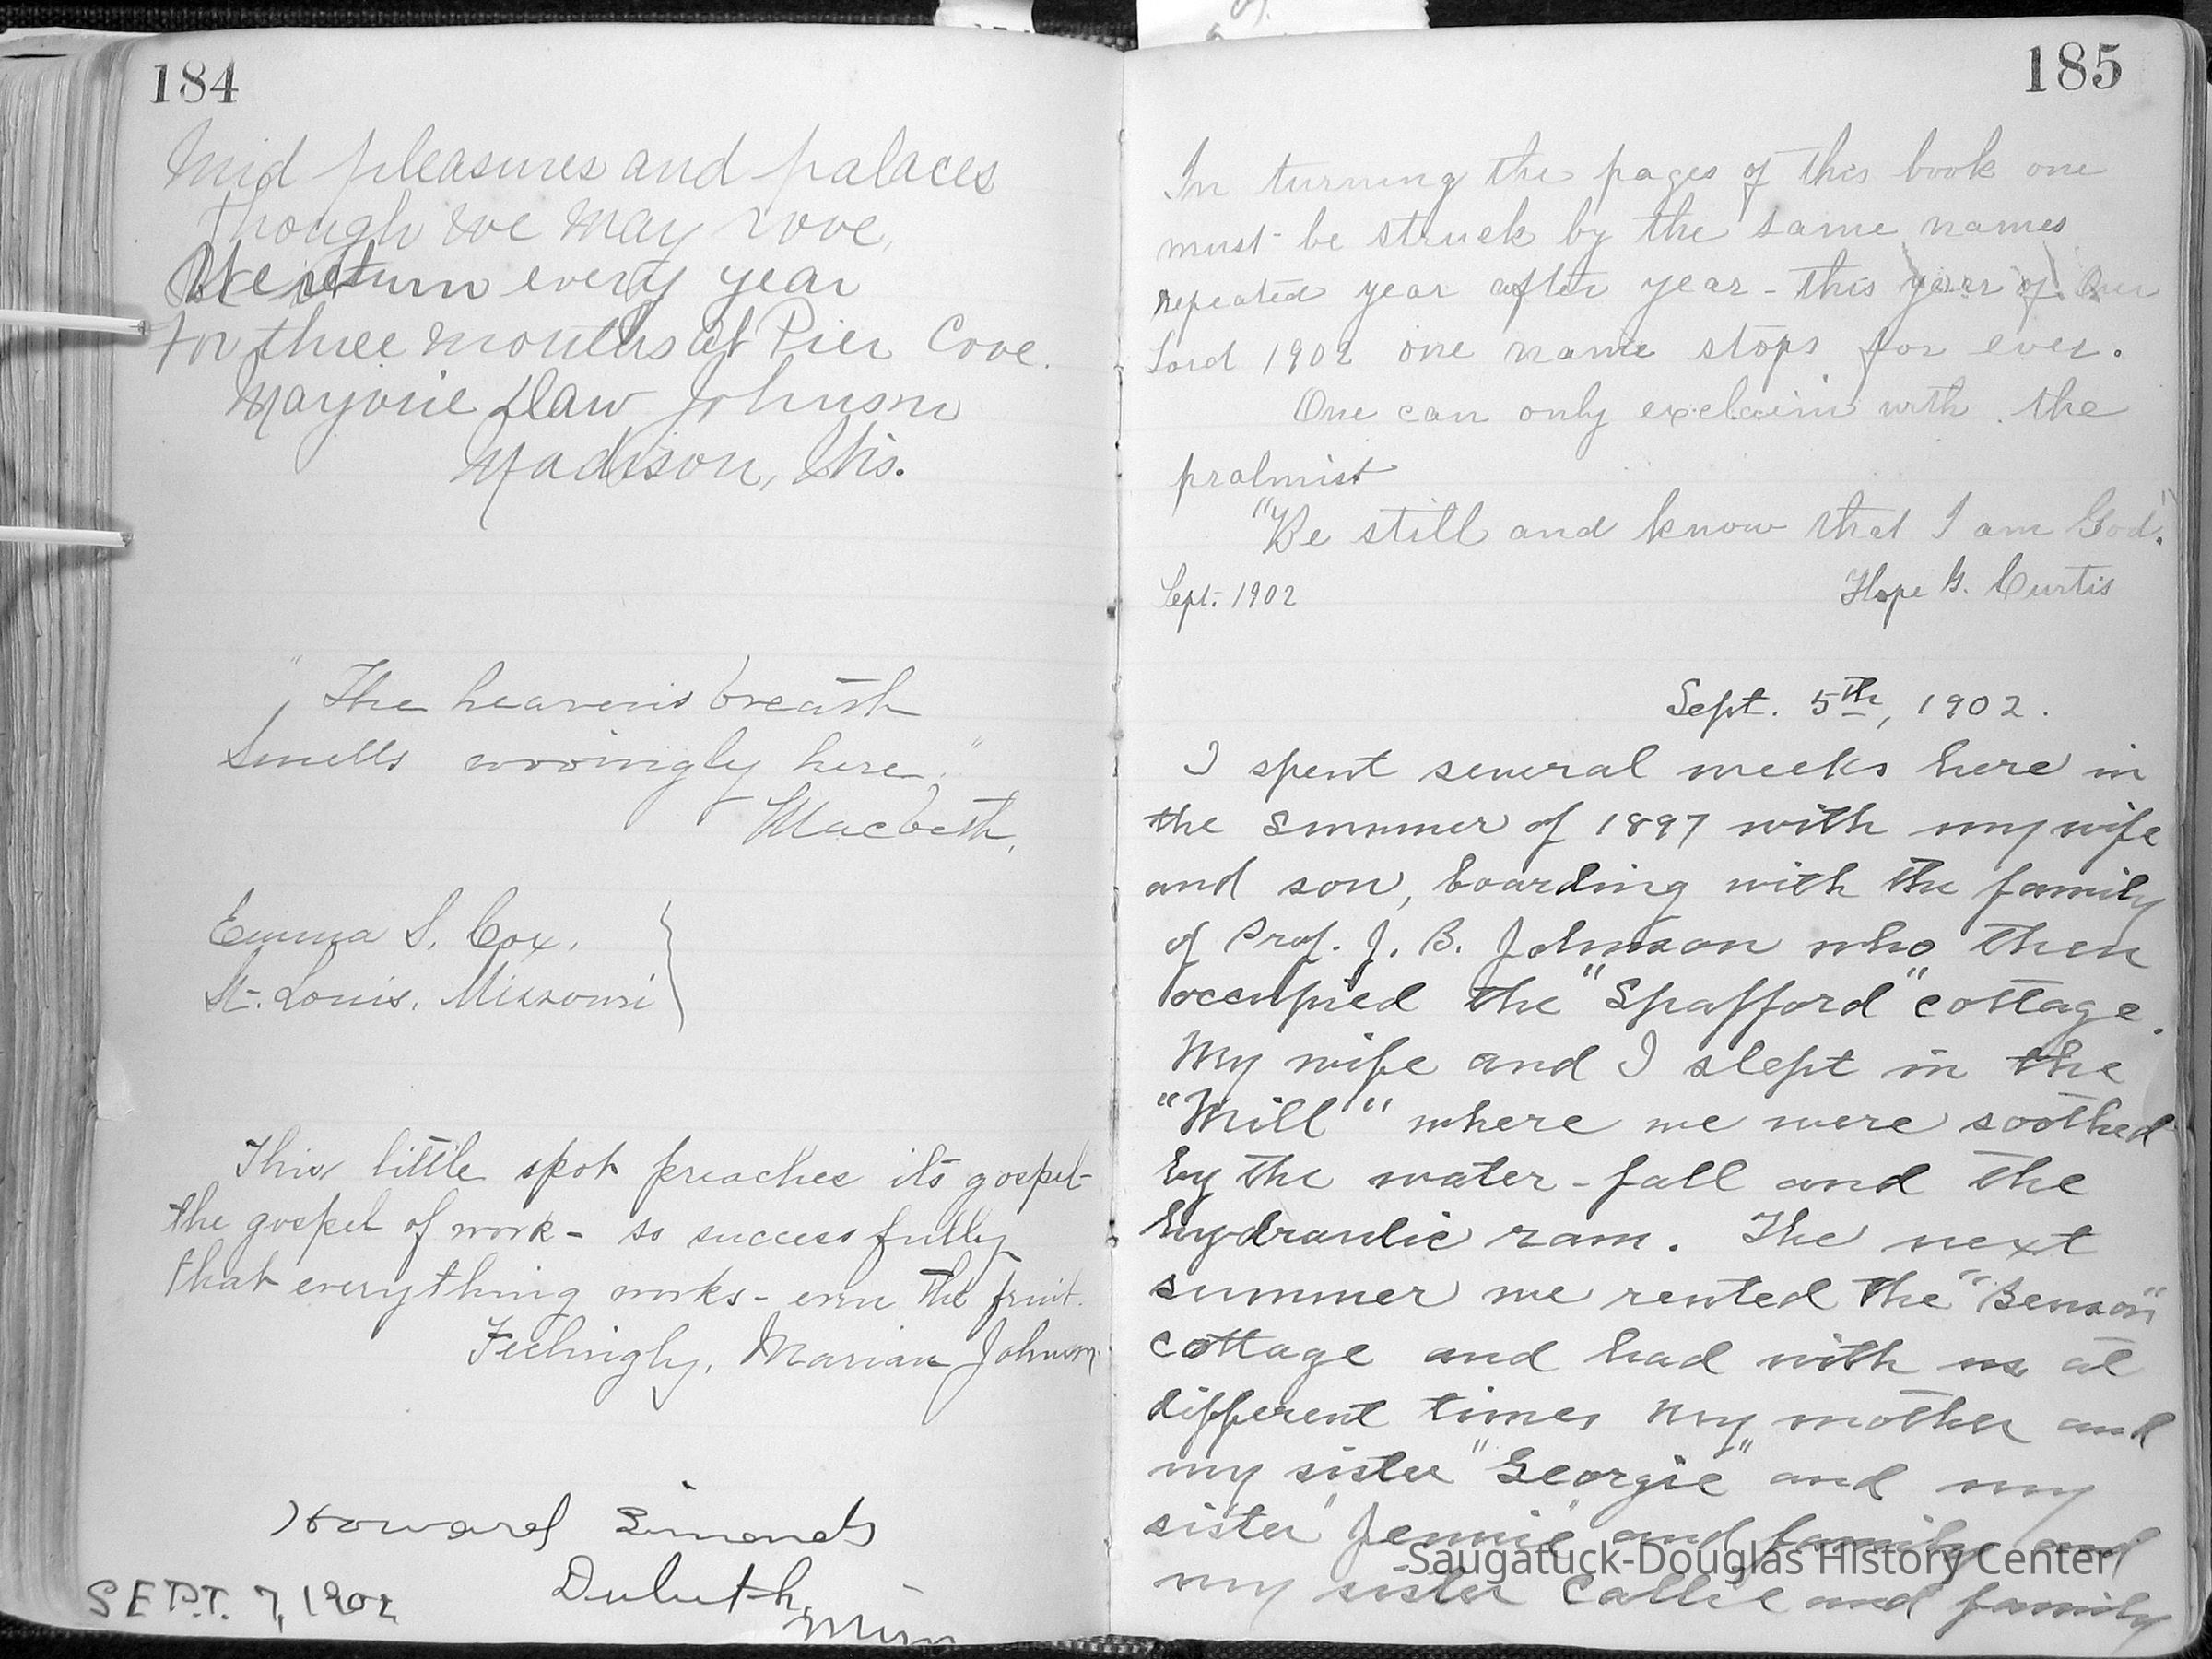 184
Mid pleasures and palaces
though we may rove,
We return every year
For three months at Pier Cove.
Marjorie Daw Johnson
Madison, Wis.
"The heavens breath
Smells wooingly here."
Macbeth.
Emma S. Cox.
St. Louis, Missouri
This little spot preaches its gospel-
the gospel of work - so successfully
that everything works - even the fruit.
Feelingly, Marian Johnson.
Howard Simonds
Duluth,
Minn
SEPT. 7, 1902
185
In turning the pages of this book one
must be struck by the same names
repeated year after year - this year of Our
Lord 1902 one name stops for ever.
One can only exclaim with the
psalmist
"Be still and know that I am God."
Sept. 1902 Hope G. Curtis
Sept. 5th, 1902.
I spent several weeks here in
the summer of 1897 with my wife
and son, boarding with the family
of Prof. J. B. Johnson who then
occupied the "Spafford" cottage.
My wife and I slept in the
"Mill" where we were soothed
by the water-fall and the
hydraulic ram. The next
summer we rented the "Benson"
cottage and had with us at
different times my mother and
my sister "Georgie" and my
sister "Jennie" and family and
my sister Callie and family
Saugatuck-Douglas History Center